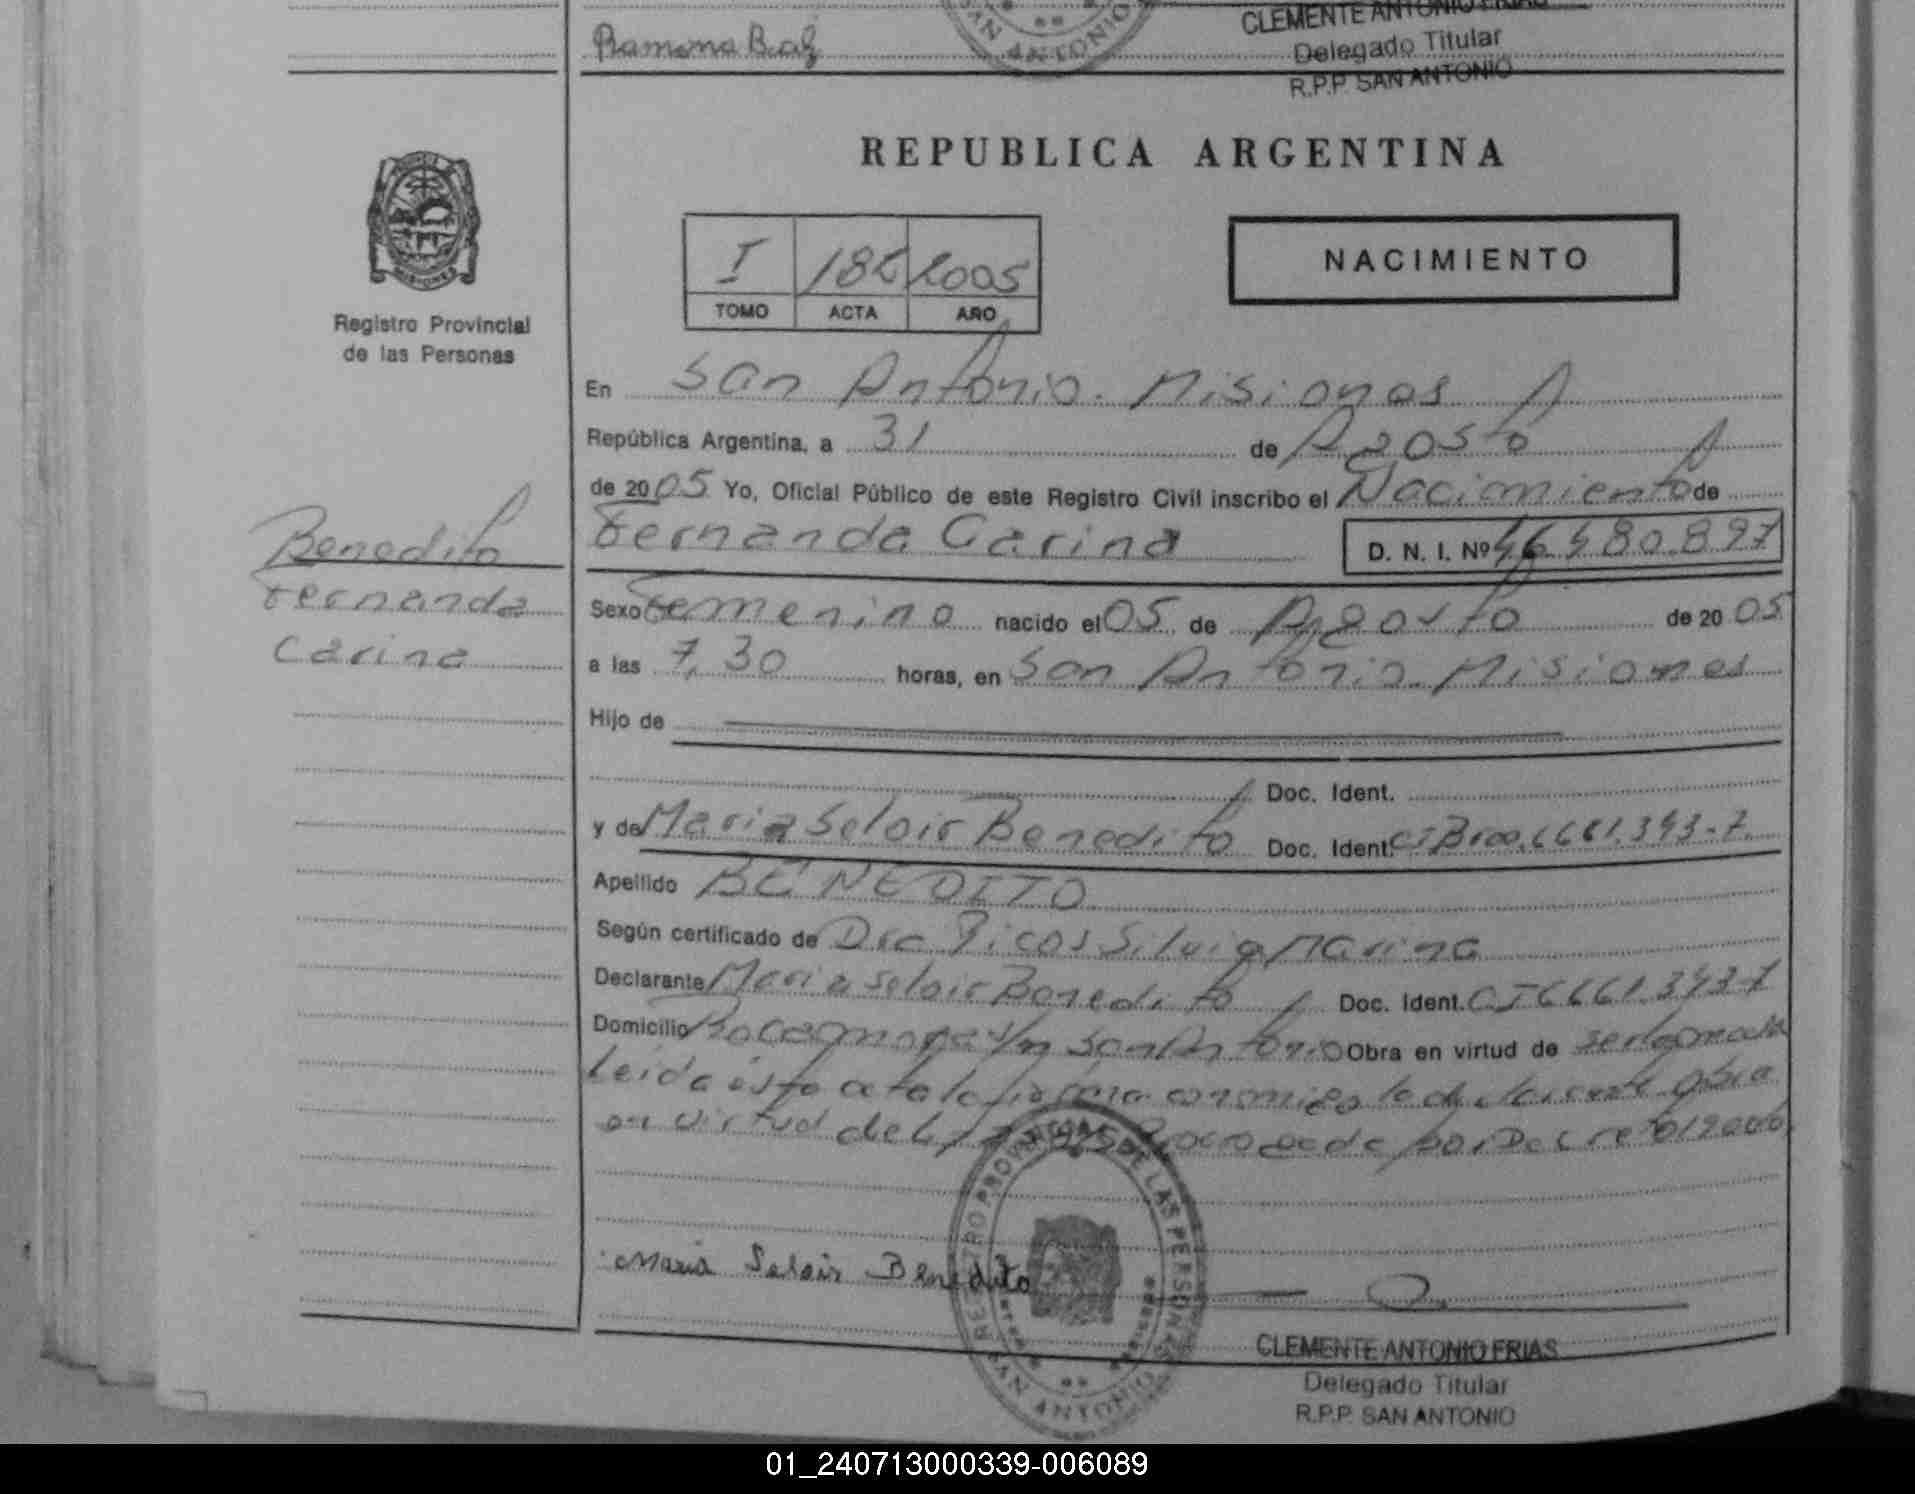 Ramona Baez
SAN ANTONIO
CLEMENTE ANTONIO FRIAS
Delegado Titular
R.P.P. SAN ANTONIO
REPUBLICA ARGENTINA
I 2005
TOMO ACTA AÑO
NACIMIENTO
MISIONES
Registro Provincial
de las Personas
En San Antonio. Misiones
República Argentina, a 31 de Agosto
de 2005 Yo, Oficial Público de este Registro Civil inscribo el Nacimiento de
Fernanda Carina D. N. I. Nº 46.480.897
Benedito
Fernanda
Carina
Sexo Femenino nacido el 05 de Agosto de 2005
a las 7,30 horas, en San Antonio. Misiones
Hijo de
Doc. Ident.
y de Maria Seloir Benedito Doc. Ident. CI Bra. 6661.343-7
Apellido BENEDITO
Según certificado de Dra Picos Silvia Marina
Declarante Maria Seloir Benedito Doc. Ident. CI 6661.343-7
Domicilio Rocamora S/n San Antonio Obra en virtud de ser la madre
Leida esta acta la firma conmigo la declarante obra
en virtud de por Decreto
REGISTRO PROVINCIAL DE LAS PERSONAS
SAN ANTONIO
Maria Seloir Benedito
CLEMENTE ANTONIO FRIAS
Delegado Titular
R.P.P. SAN ANTONIO
01_240713000339-006089